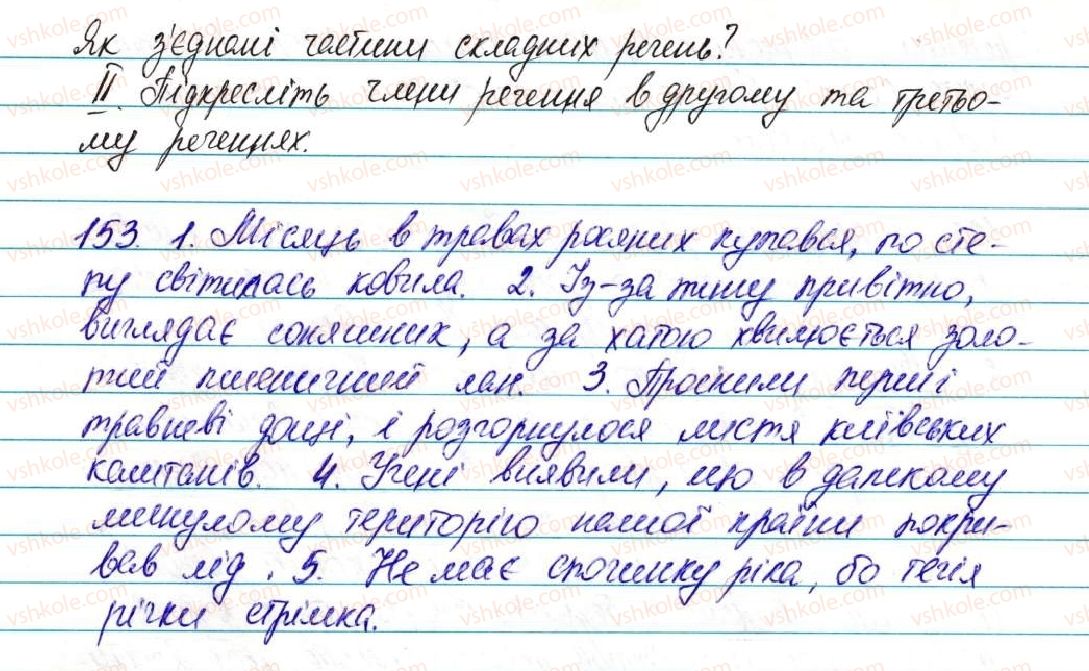 Як з'єднані частини складних речень?
II. Підкресліть члени речення в другому та третьо-
му реченнях.
153. 1. Місяць в травах росяних купався, по сте-
пу світилась ковила. 2. Із-за тину привітно,
виглядає соняшник, а за хатою хвилюється золо-
тий пшеничний лан. 3. Пройшли перші
травневі дощі, і розгорнулося листя київських
каштанів. 4. Учені виявили, що в далекому
минулому територію нашої країни покри-
вав лід. 5. Не має спочинку ріка, бо течія
річки стрімка.